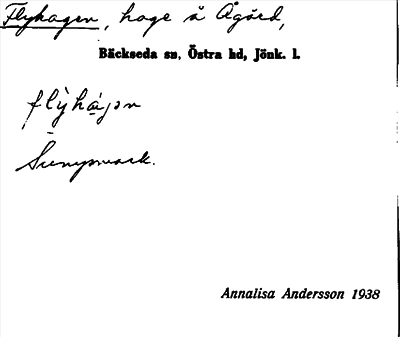 Flyhagen, hage å Ågård,
Bäckseda sn, Östra hd, Jönk. l.
flỳhá̱jən
Sumpmark.
Annalisa Andersson 1938